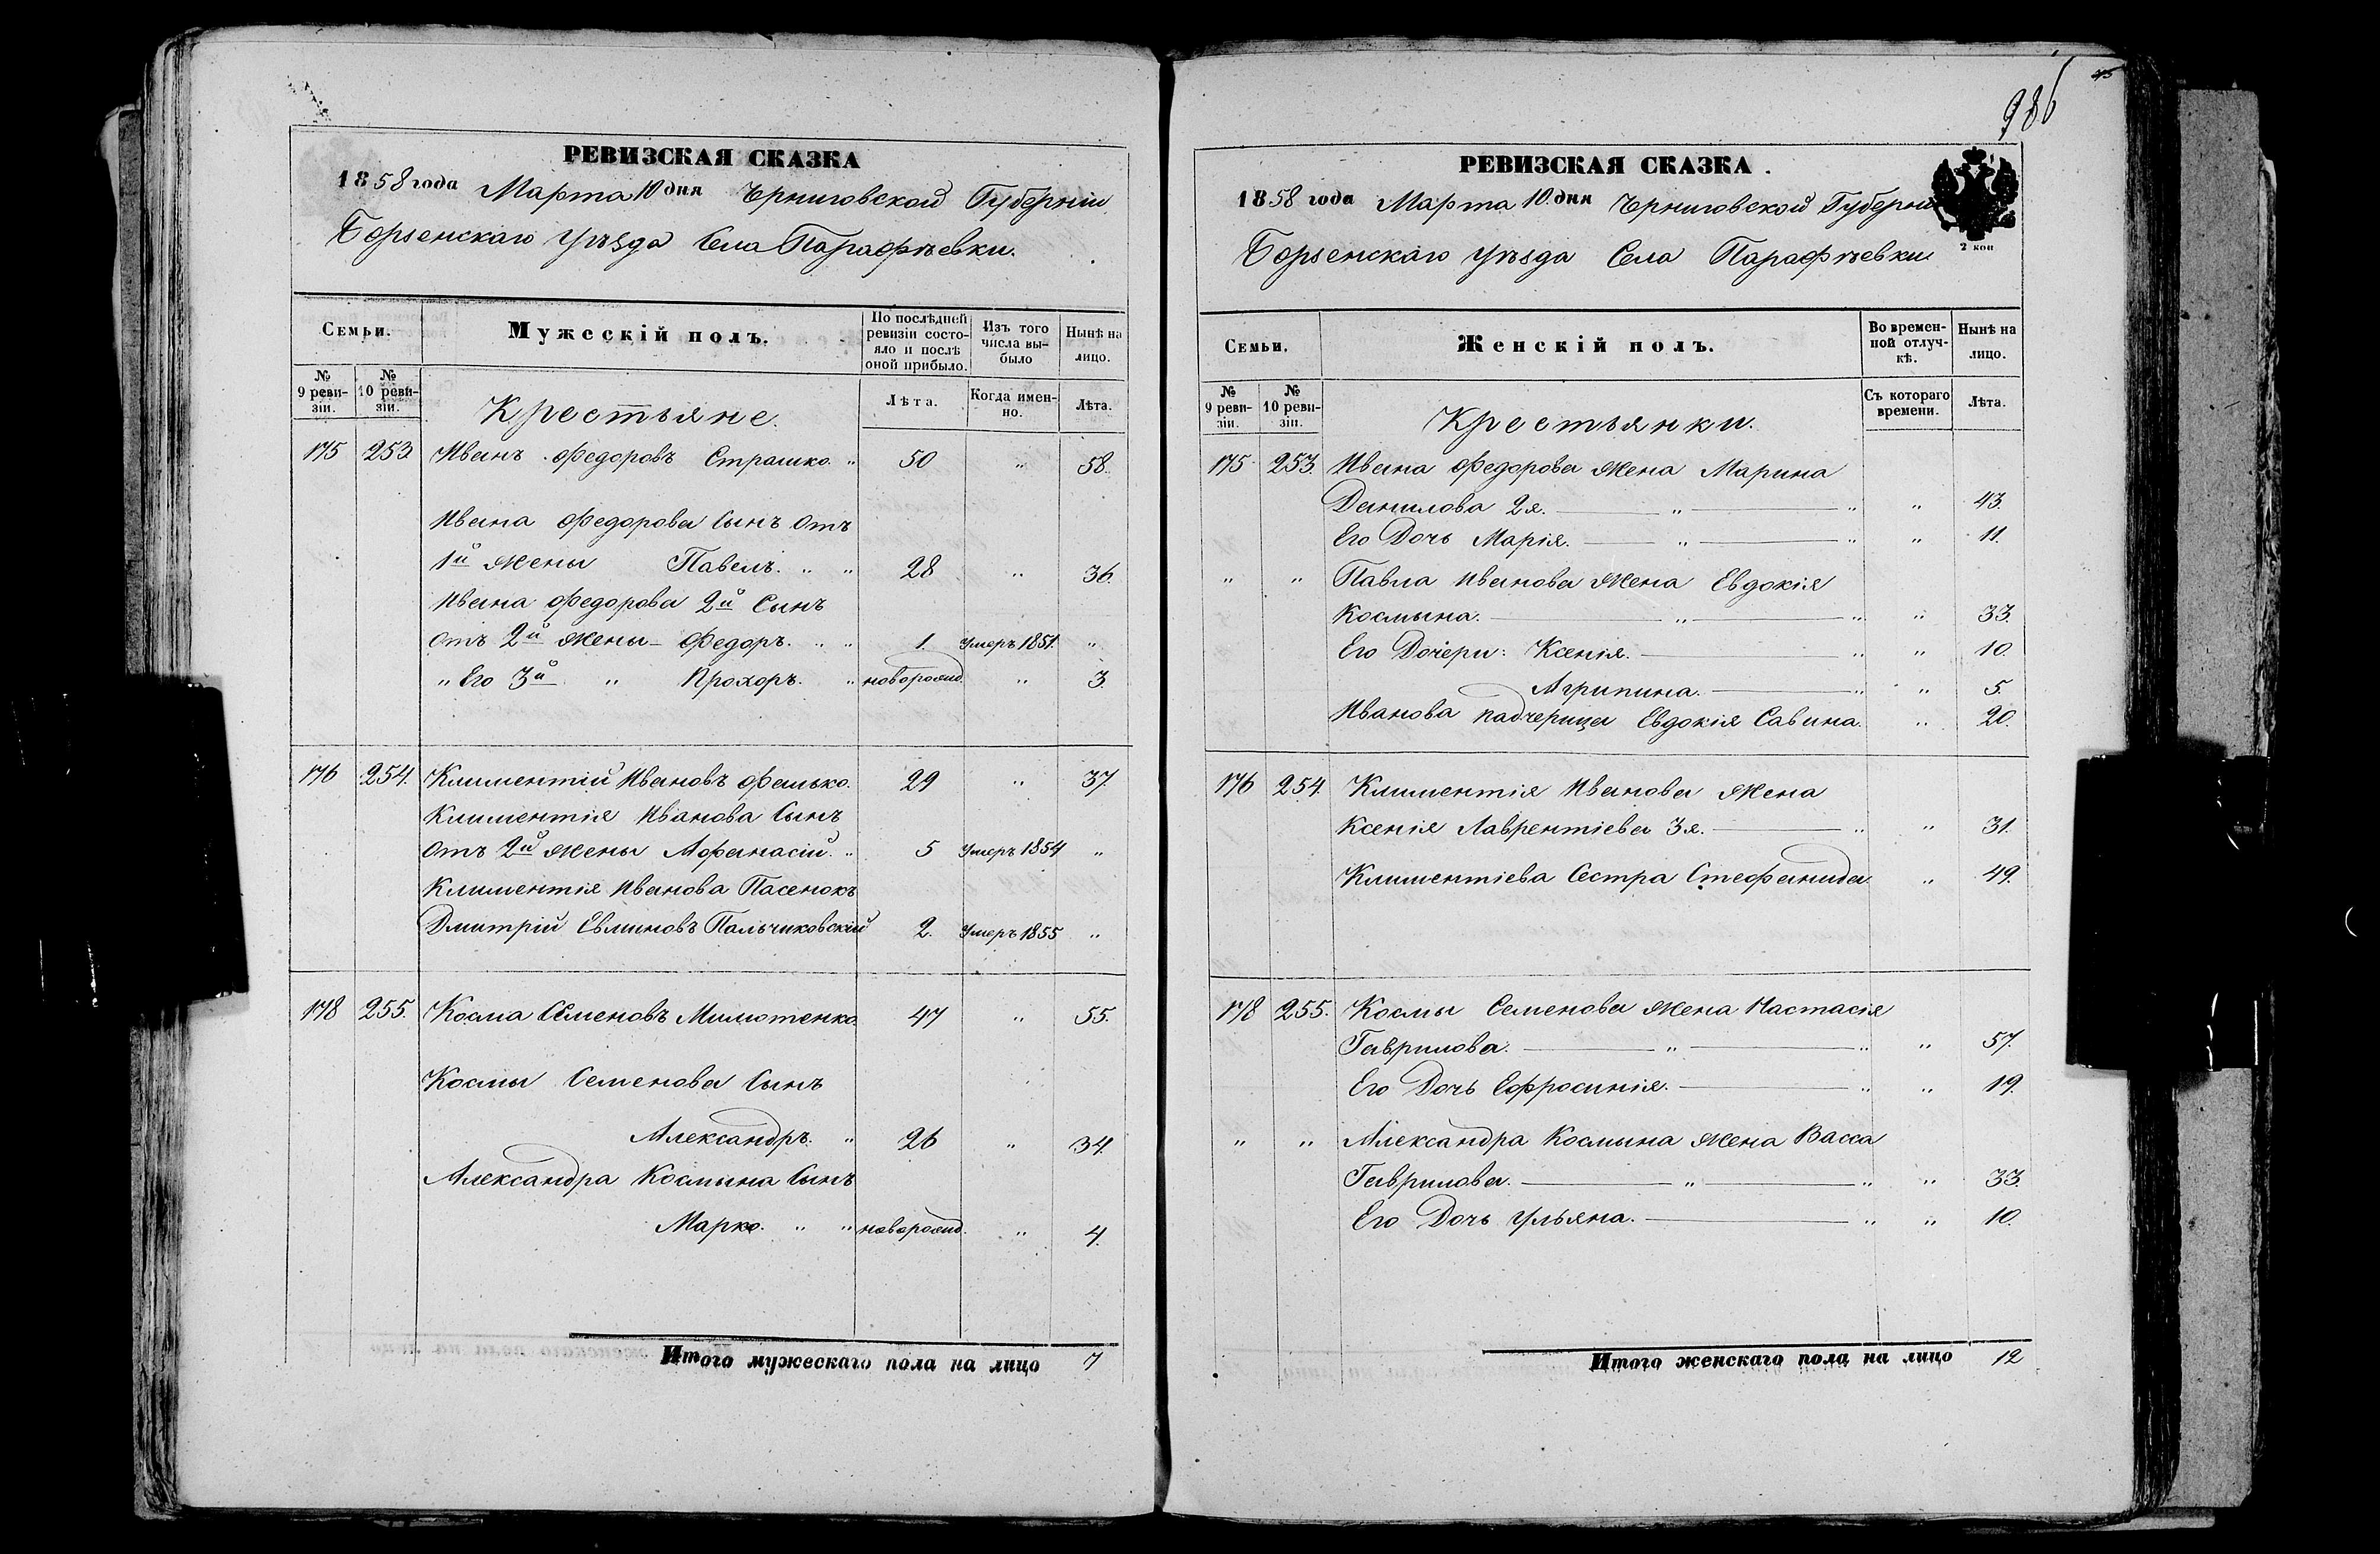 РЕВИЗСКАЯ СКАЗКА
1858 года Марта 10 дня Черниговской Губерніи
Борзенскаго Уѣзда Села Парафѣевки.
Семьи.
Мужескій полъ.
По послѣдней ревизіи состояло и послѣ оной прибыло.
Изъ того числа выбыло
Нынѣ на лицо.
№ 9 ревизіи.
№ 10 ревизіи.
Крестьяне.
Лѣта.
Когда именно.
Лѣта.
175 253 Иванъ Федоровъ Страшко. " 50 " 58.
Ивана Федорова Сынъ отъ
1й жены Павелъ. " " 28 " 36.
Ивана Федорова 2й Сынъ
отъ 2й жены - Федоръ. " " 1. Умеръ 1851. "
" Его 3й " Прохоръ. " новорожд. " 3.
176 254. Климентій Ивановъ Фалько. 29 " 37.
Климентія Иванова Сынъ
отъ 2й жены Афанасій. " 5 Умеръ 1854 "
Климентія Иванова Пасенокъ
Дмитрій Пальчиковскій 2. Умеръ 1855 "
178 255. Косма Семеновъ Милютенко. 47 " 55.
Космы Семенова Сынъ
Александръ. " 26 " 34.
Александра Космына Сынъ
Марко. " " новорожд. " 4.
Итого мужескаго пола на лицо 7
986
45
РЕВИЗСКАЯ СКАЗКА.
1858 года Марта 10 дня Черниговской Губерніи
2 коп
Борзенскаго Уѣзда Села Парафѣевки
Семьи.
Женскій полъ.
Во временной отлучкѣ.
Нынѣ на лицо.
№ 9 ревизіи.
№ 10 ревизіи.
Крестьянки.
Съ котораго времени.
Лѣта.
175 253. Ивана Федорова жена Марина
Данилова 2я. " " " 43.
Его Дочь Марія. " " " 11.
" " Павла Иванова жена Евдокія
Космына. " " " 33.
Его Дочери: Ксенія. " " 10.
Агрипина. " " 5.
Иванова падчерица Евдокія Савина. " 20.
176 254. Климентія Иванова жена
Ксенія Лаврентіева 3я. " " 31.
Климентіева Сестра Стефанида " 49.
178 255. Космы Семенова жена Настасія
Гаврилова. " " " 57.
Его Дочь Ефросинія. " " 19.
" " Александра Космына жена Васса
Гаврилова. " " " 33.
Его Дочь Ульяна. " " 10.
Итого женскаго пола на лицо 12